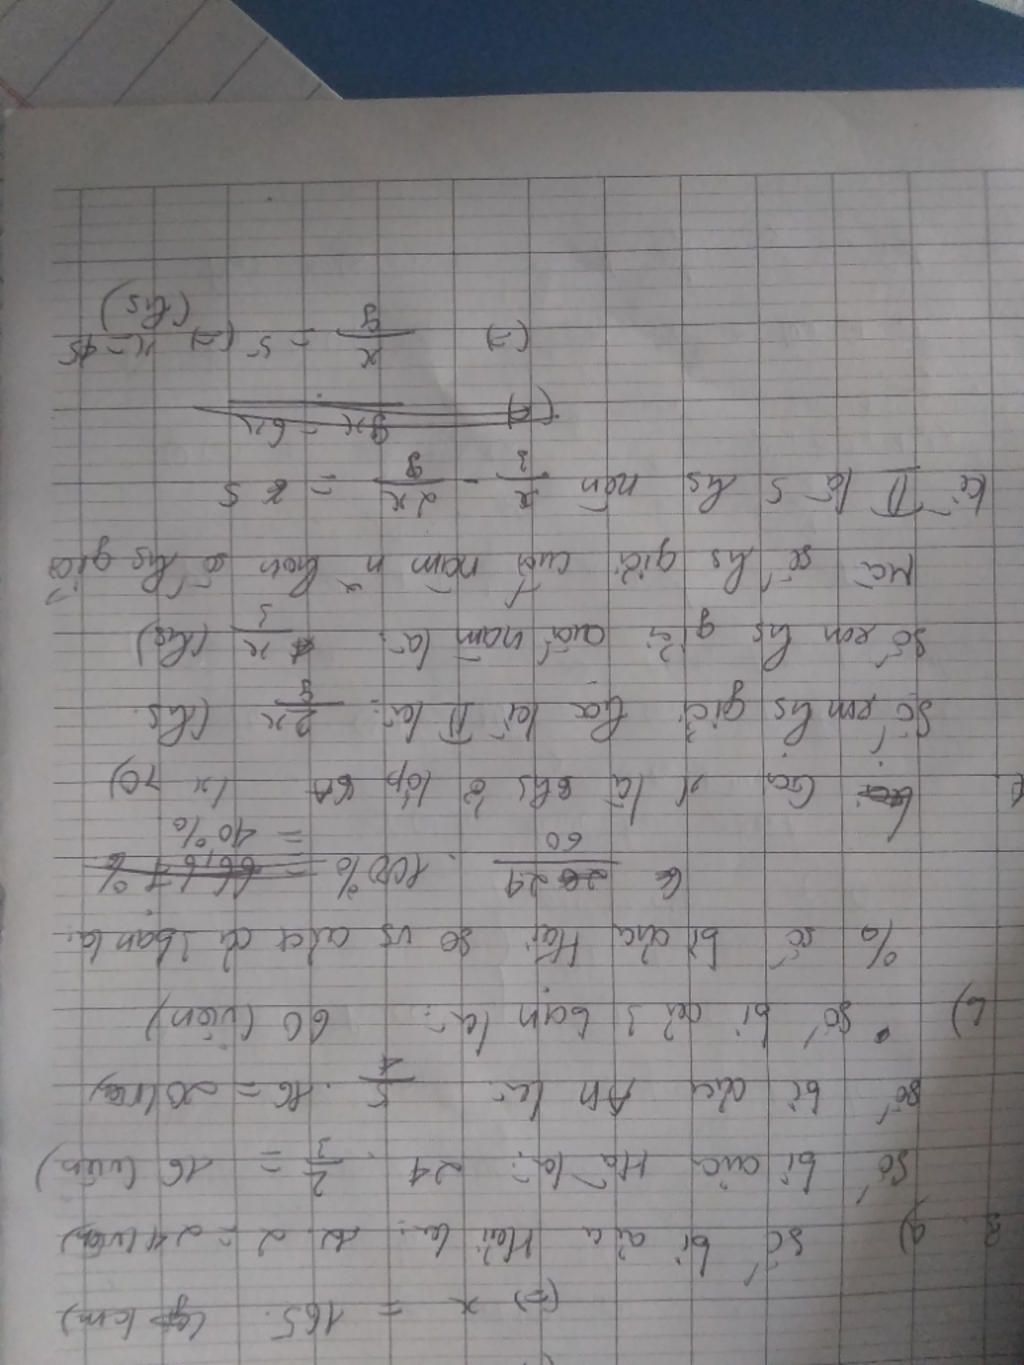 (=) x = 165. (km)
3 a) Số bi của Hải là: 12 . 2 = 24 (viên)
Số bi của Hà là: 24 . 2/3 = 16 (viên)
Số bi của An là: 5/4 . 16 = 20 (viên)
b) Số bi cả 3 bạn là: 60 (viên)
% số bi của Hải so vs của cả 3 bạn là:
24/60 . 100% = 66,67%
= 40%
Gọi x là shs ở lớp 6A (x > 0)
Số em hs giỏi kì II là: 2x/9 (hs)
Số em hs giỏi cuối năm là: x/3 (hs)
Mà số hs giỏi cuối năm hơn số hs giỏi
kì II là 5 hs nên x/3 - 2x/9 = 5
(=) 9x - 6x
(=) x/9 = 5 (=) x = 45
(hs)